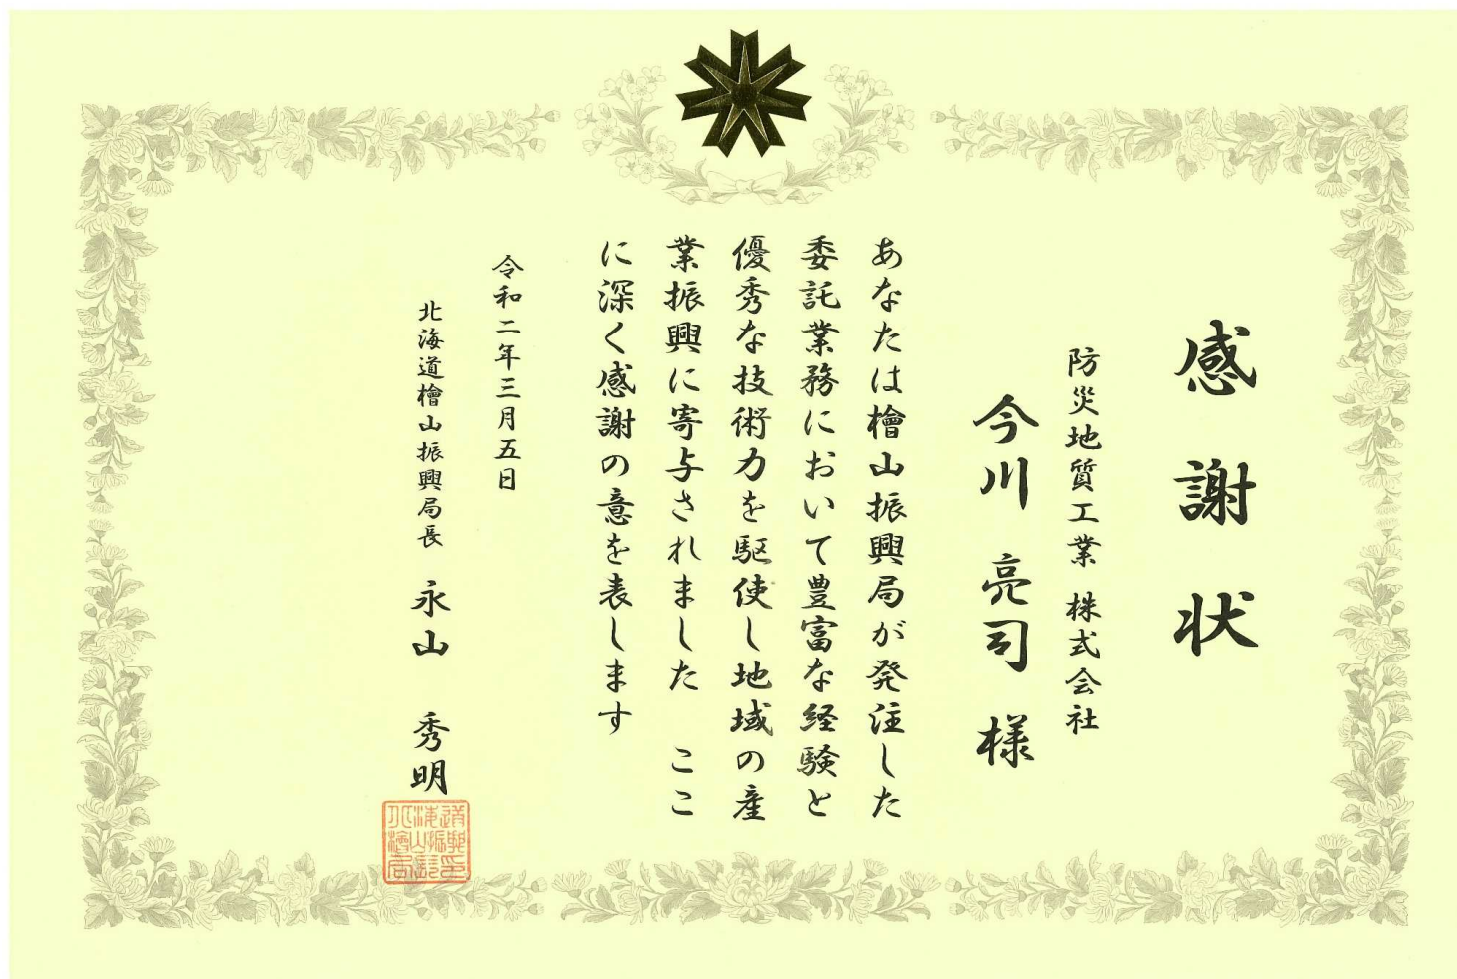 感謝状
防災地質工業 株式会社
今川 亮司 様
あなたは檜山振興局が発注した
委託業務において豊富な経験と
優秀な技術力を駆使し地域の産
業振興に寄与されました ここ
に深く感謝の意を表します
令和二年三月五日
北海道檜山振興局長 永山 秀明